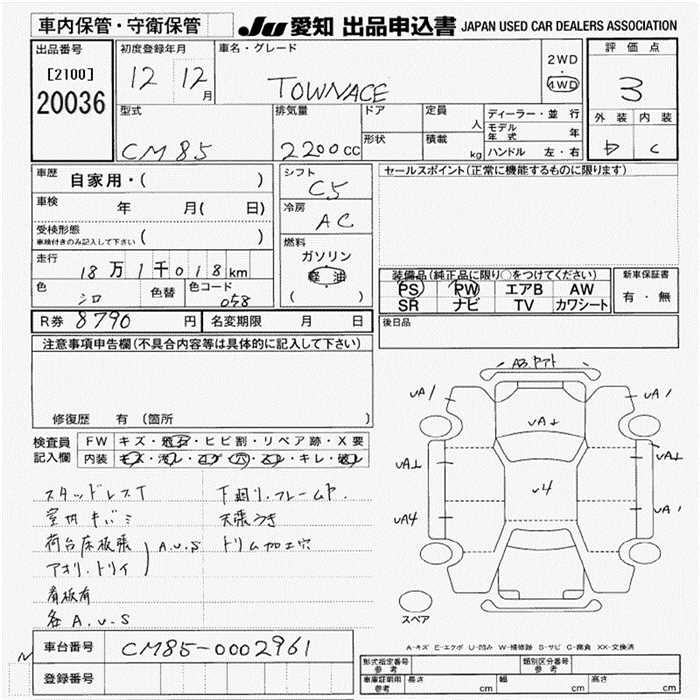 車内保管・守衛保管
JU 愛知 出品申込書 JAPAN USED CAR DEALERS ASSOCIATION
出品番号
[2100]
20036
初度登録年月
12 12月
車名・グレード
TOWNACE
2WD
4WD
評価点
3
外装 内装
b c
型式
CM85
排気量
2200cc
ドア
形状
定員
人
積載
kg
ディーラー・並行
モデル年式 年
ハンドル 左・右
車歴 自家用・( )
車検 年 月( 日)
受検形態
車検付きのみ記入して下さい ( )
走行 18万1千018km
色 シロ 色替 色コード 058
シフト
C5
冷房
AC
燃料
ガソリン
軽油
( )
セールスポイント(正常に機能するものに限ります)
装備品(純正品に限り○をつけてください)
PS PW エアB AW
SR ナビ TV カワシート
新車保証書
有・無
R券 8790円 名変期限 月 日
後日品
注意事項申告欄(不具合内容等は具体的に記入して下さい)
修復歴 有 (箇所 )
検査員
記入欄
FW キズ・飛石・ヒビ割・リペア跡・X要
内装 キズ・汚レ・コゲ・穴・スレ・キレ・破レ
スタッドレスT
室内キバミ
荷台床板張
アオリ.トリイ
A.U.S
看板有
各A.U.S
下廻り.フレームP.
天張うき
トリム加工穴
UA1
UA1
UA1
U4
UA4
スペア
A-キズ E-エクボ U-凹み W-補修跡 S-サビ C-腐食 XX-交換済
N
車台番号 CM85-0002961
登録番号
形式指定番号
参考
類別区分番号
参考
車庫証明用
参考
長さ cm 幅 cm 高さ cm